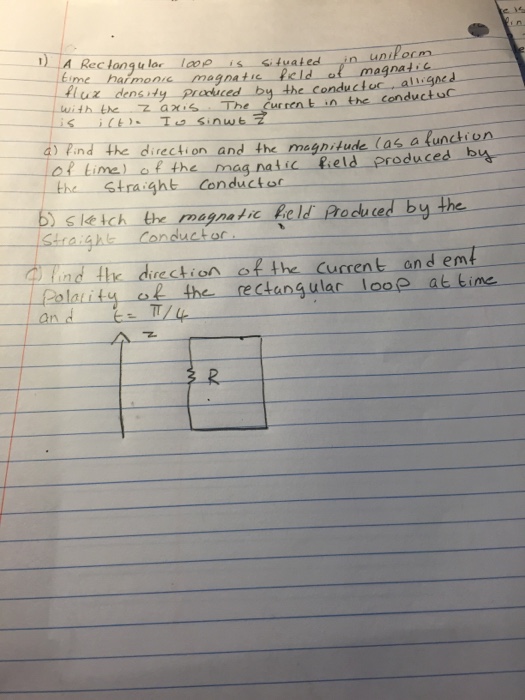 1) A Rectangular loop is situated in uniform
time harmonic magnatic field of magnatic
flux density produced by the conductor, alligned
with the z axis. The current in the conductor
is i(t)= Io sinwt z
a) find the direction and the magnitude (as a function
of time) of the magnatic field produced by
the straight conductor
b) sketch the magnatic field produced by the
straight conductor.
c) find the direction of the current and emf
polarity of the rectangular loop at time
and t= π/4
z
R